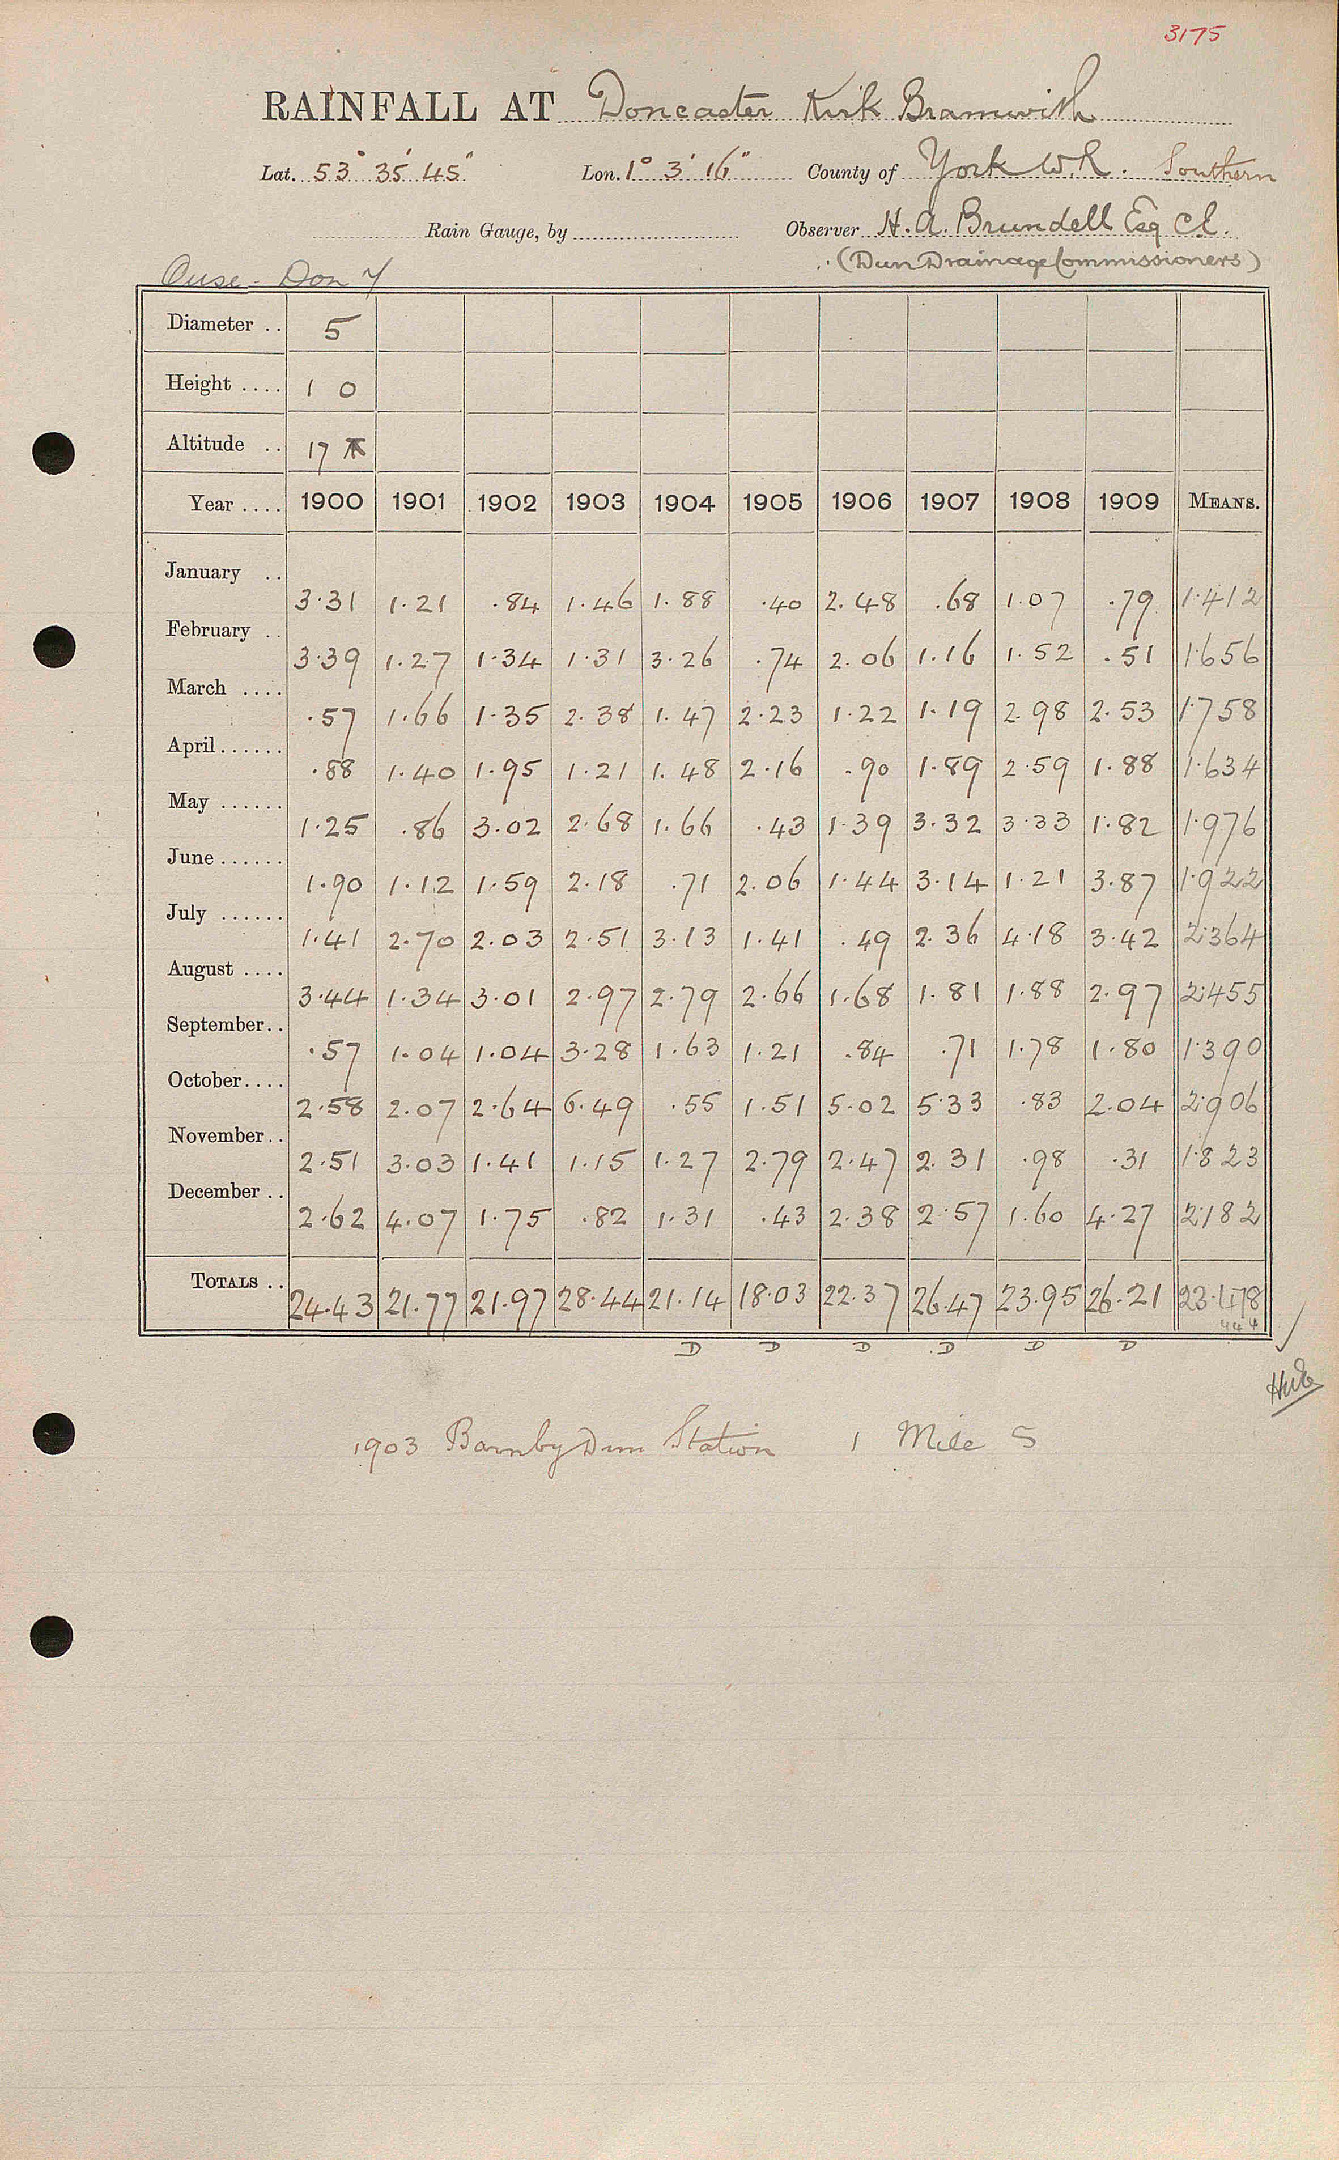 3175
RAINFALL AT Doncaster Kirk Bramwith
Lat. 53° 35' 45" Lon. 1° 3' 16" County of York W.R. Southern
Rain Gauge, by Observer H. A. Brundell Esq
(Dun Drainage Commissioners)
Ouse - Don
Diameter .. 5
Height .... 1 0
Altitude .. 17
Year .... 1900 1901 1902 1903 1904 1905 1906 1907 1908 1909 MEANS.
January .. 3.31 1.21 .84 1.46 1.88 .40 2.48 .68 1.07 .79 1.412
February .. 3.39 1.27 1.34 1.31 3.26 .74 2.06 1.16 1.52 .51 1.656
March .... .57 1.66 1.35 2.38 1.47 2.23 1.22 1.19 2.98 2.53 1.758
April ...... .88 1.40 1.95 1.21 1.48 2.16 .90 1.89 2.59 1.88 1.634
May ...... 1.25 .86 3.02 2.68 1.66 .43 1.39 3.32 3.33 1.82 1.976
June ...... 1.90 1.12 1.59 2.18 .71 2.06 1.44 3.14 1.21 3.87 1.922
July ...... 1.41 2.70 2.03 2.51 3.13 1.41 .49 2.36 4.18 3.42 2.364
August .... 3.44 1.34 3.01 2.97 2.79 2.66 1.68 1.81 1.88 2.97 2.455
September .. .57 1.04 1.04 3.28 1.63 1.21 .84 .71 1.78 1.80 1.390
October .... 2.58 2.07 2.64 6.49 .55 1.51 5.02 5.33 .83 2.04 2.906
November .. 2.51 3.03 1.41 1.15 1.27 2.79 2.47 2.31 .98 .31 1.823
December .. 2.62 4.07 1.75 .82 1.31 .43 2.38 2.57 1.60 4.27 2.182
TOTALS .. 24.43 21.77 21.97 28.44 21.14 18.03 22.37 26.47 23.95 26.21 23.478
D D D D D D
1903 Barnby Dun Station 1 Mile S